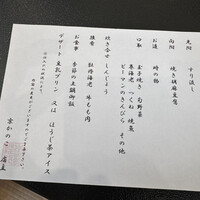 先附　すり流し
向附　焼き胡麻豆腐
お造　時の物
口取　玉子焼き　旬野菜
車海老　つくね　焼魚
ピーマンのきんぴら　その他
炊き合せ　しんじょう
強肴　牡蛎海老　味もも肉
お食事　季節の土鍋御飯
デザート　豆乳プリン　又は　ほうじ茶アイス
京かのこ　店主